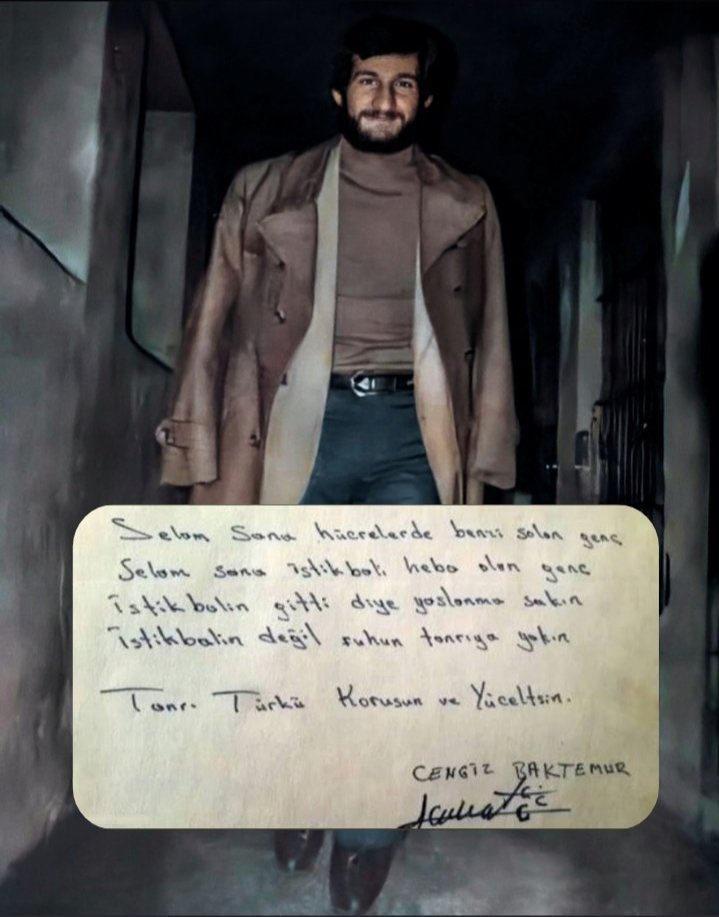 Selam Sana hücrelerde benzi solan genç
Selam sana istikbali heba olan genç
istikbalin gitti diye yaslanma sakın
istikbalin değil ruhun tanrıya yakın
Tanrı Türkü Korusun ve Yüceltsin.
CENGİZ BAKTEMUR